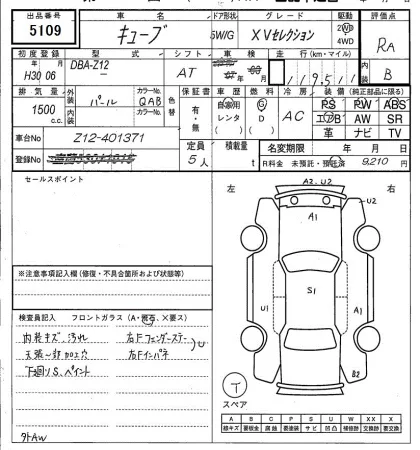 出品番号 車名 ドア形状 グレード 駆動 評価点
5109 キューブ 5W/G XVセレクション 2WD 4WD RA
初度登録 型式 シフト 車検 走行(km・マイル) 内装
H30 06 DBA-Z12 AT 年 月 119,511 B
排気量 外装色 パール カラーNo. QAB 色替 保証書 車歴 燃料 冷房 装備(純正部品に限る)
1500 c.c. 内装 カラーNo. 有・無 自家用 レンタ G D AC PS PW ABS
エアB AW SR
革 ナビ TV
車台No Z12-401371
定員 積載量 名変期限 年 月 日
登録No 5人 t R料金 未預託・預託済 9,210 円
セールスポイント
左 右
A2.U2
U2
A1
S1
U1 A1
B2
※注意事項記入欄(修復・不具合箇所および状態等)
検査員記入 フロントガラス(A・飛石、X要ス)
内装キズ、汚れ 右Fフェンダーステー
天張一部加工穴 右Fインパネ
下廻りS、ペイント
外AW
スペア
A B C P S U W X XX
線キズ 要板金 腐蝕 要塗装 サビ 凹凸 補修跡 要交換 交換済